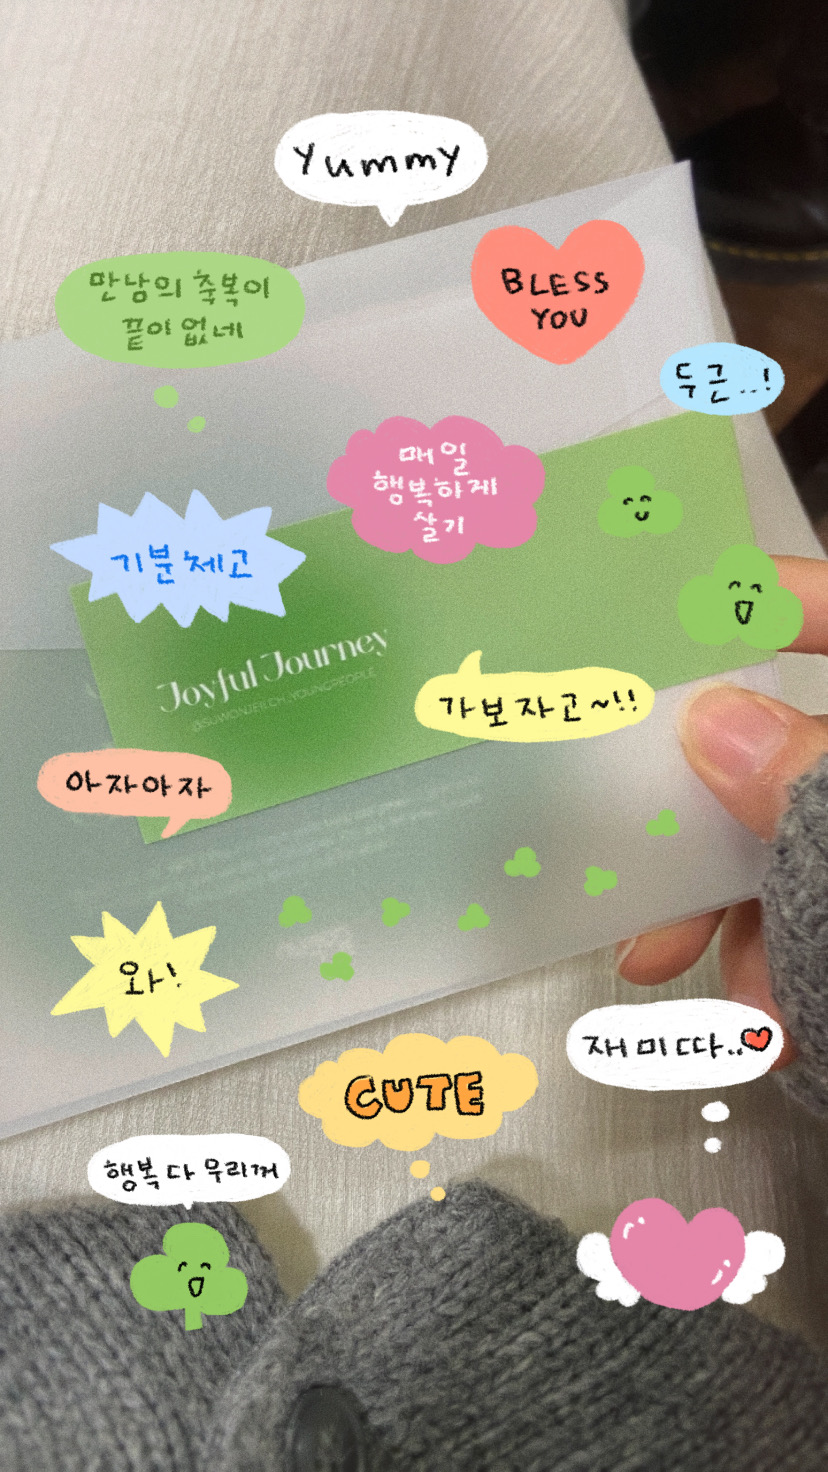 Yummy
만남의 축복이
끝이 없네
BLESS
YOU
두근..!
매일
행복하게
살기
기분체고
Joyful Journey
@SUWONJEILCH_YOUNGPEOPLE
가보자고~!!
아자아자
와!
재미따..
CUTE
행복 다 우리꺼